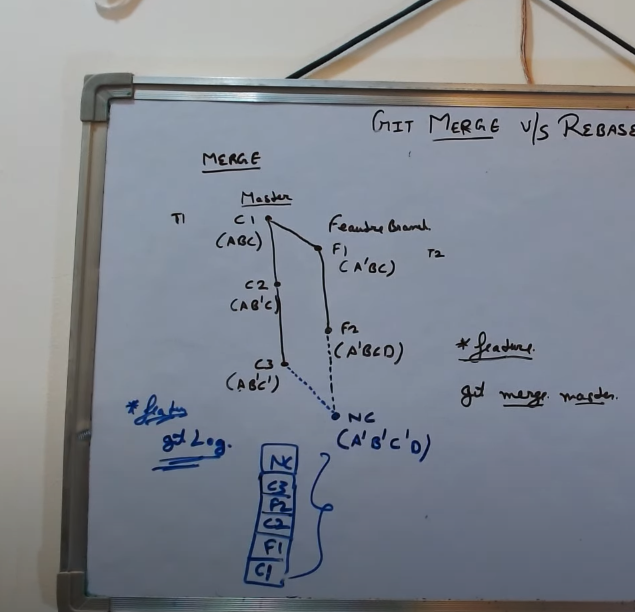 GIT MERGE V/S REBASE
MERGE
Master
T1 C1
(ABC)
Feauture Branch
F1
(A'BC)
T2
C2
(AB'C)
F2
(A'BCD)
C3
(AB'C')
* feature
git merge master.
NC
(A'B'C'D)
git Log.
NC
C3
F2
C2
F1
C1